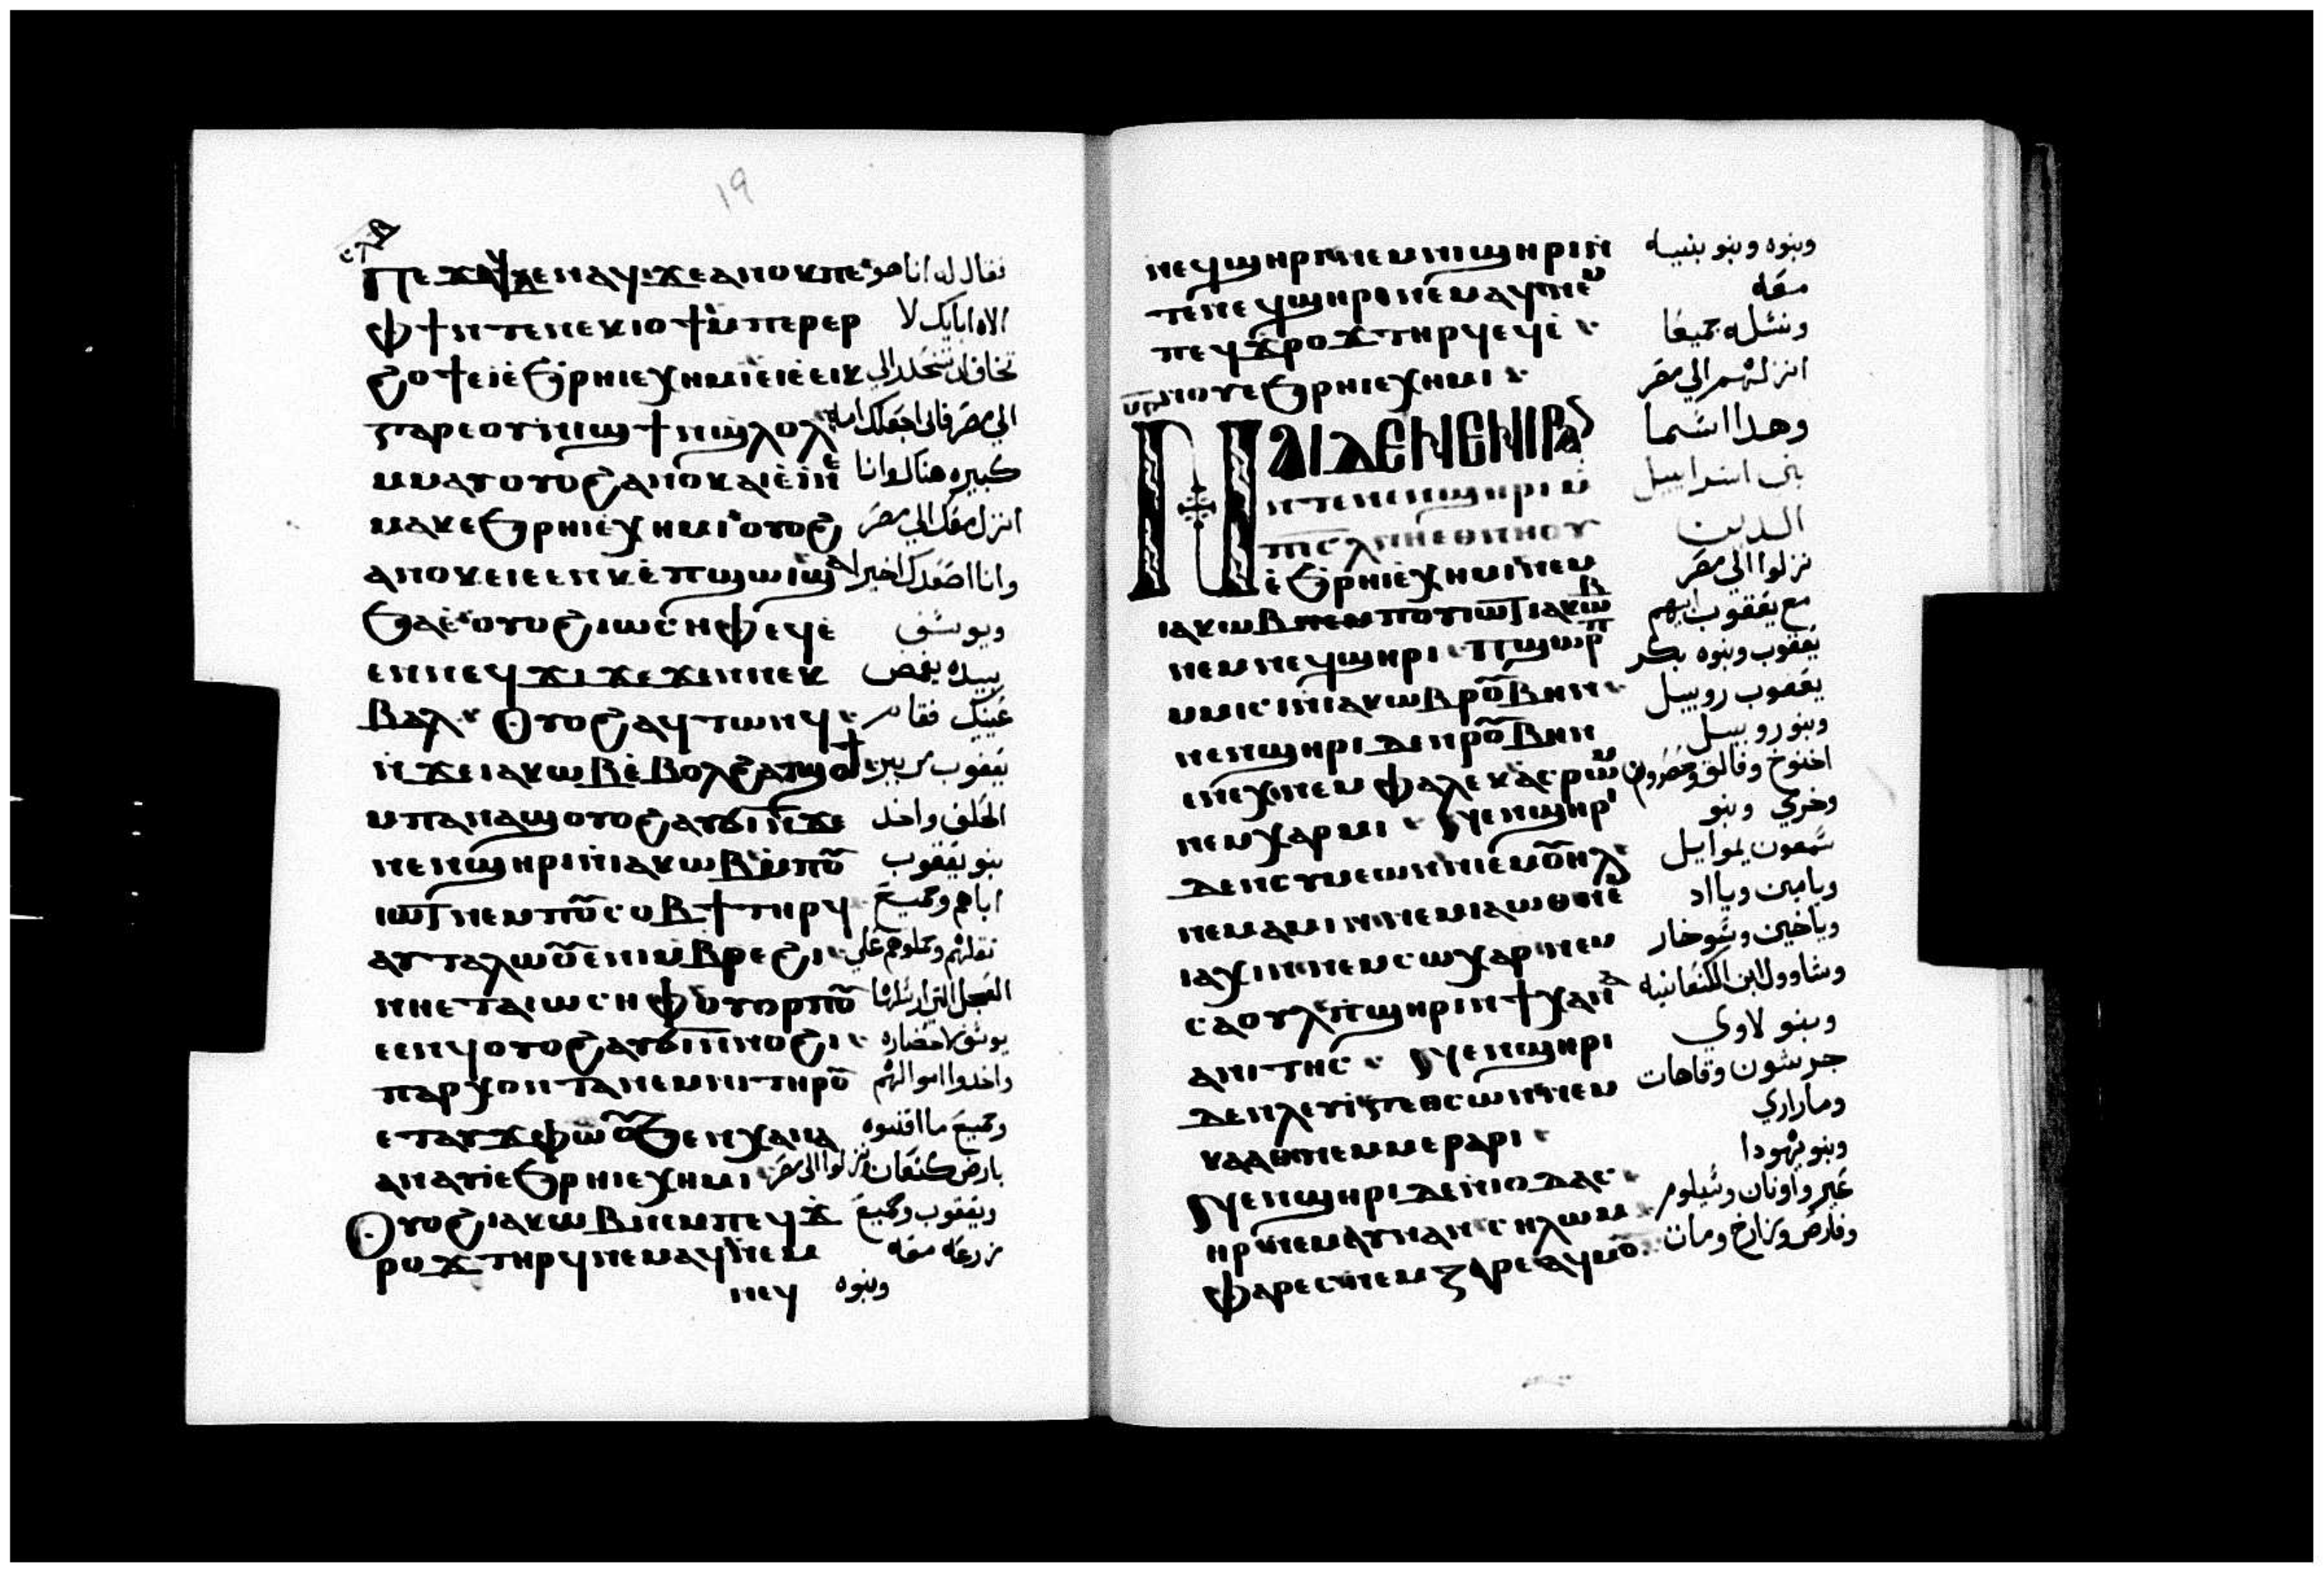 19
ⲡⲉϫⲁϥ ⲇⲉ ⲛⲁϥ ϫⲉ ⲁⲛⲟⲕ ⲡⲉ فقال له انا هو
ⲫϯ ⲛⲧⲉ ⲛⲉⲕⲓⲟϯ ⲙⲡⲉⲣⲉⲣ الاه ابايك لا
ϩⲟϯ ⲉⲓⲉ ϧⲣⲏⲓ ⲉⲭⲏⲙⲓ ⲉⲓⲉⲉⲓⲕ تخاف ان تنحدر الي
ⲅⲁⲣ ⲉⲟⲩⲛⲓϣϯ ⲛϣⲗⲟⲗ الي مصر فاني اجعلك امه
ⲙⲙⲁⲩ ⲟⲩⲟϩ ⲁⲛⲟⲕ ⲉⲓⲉⲓ ⲛⲉ كبيره هناك وانا
ⲙⲁⲕ ⲉϧⲣⲏⲓ ⲉⲭⲏⲙⲓ ⲟⲩⲟϩ انزل معك الي مصر
ⲁⲛⲟⲕ ⲉⲓⲉⲉⲛⲕ ⲉⲡϣⲱⲓ ϣⲁ وانا اصعدك اخيرا
ϧⲁⲉ ⲟⲩⲟϩ ⲓⲱⲥⲏⲫ ⲉϥⲉ ويوسف
ⲉⲛ ⲛⲉϥϫⲓϫ ⲉϫⲉⲛ ⲛⲉⲕ بيده يغمض
ⲃⲁⲗ ⲟⲩⲟϩ ⲁϥⲧⲱⲛϥ عينيك فقام
ⲛϫⲉ ⲓⲁⲕⲱⲃ ⲉⲃⲟⲗϩⲁ ⲧϣⲟϯ يعقوب من بير
ⲙⲡⲁⲛⲁϣ ⲟⲩⲟϩ ⲁⲩϭⲓ ⲛϫⲉ الحلف واخذ
ⲛⲉⲛϣⲏⲣⲓ ⲛⲓⲁⲕⲱⲃ ⲙⲡⲟⲩ بنو يعقوب
ⲓⲱⲧ ⲛⲉⲙ ⲡⲟⲩⲥⲟⲃϯ ⲧⲏⲣϥ اباهم وجميع
ⲁⲩⲧⲁⲗⲱⲟⲩ ⲉⲛⲓⲙⲃⲣⲉϩⲓ ثقلهم وحملوهم علي
ⲛⲏⲉⲧⲁ ⲓⲱⲥⲏⲫ ⲟⲩⲟⲣⲡⲟⲩ العجل التي ارسلها
ⲉⲉⲛϥ ⲟⲩⲟϩ ⲁⲩϭⲓ ⲛⲛⲟⲩϩⲓ يوسف لاحضاره
ⲡⲁⲣⲭⲟⲛⲧⲁ ⲛⲉⲙ ⲛⲓ ⲧⲏⲣⲟⲩ واخدوا اموالهم
ⲉⲧⲁⲩϫⲫⲱⲟⲩ ϧⲉⲛ ⲭⲁⲛⲁ وجميع ما اقتنوه
ⲁⲛ ⲁⲩⲓ ⲉϧⲣⲏⲓ ⲉⲭⲏⲙⲓ بارض كنعان ونزلوا الي مصر
ⲟⲩⲟϩ ⲓⲁⲕⲱⲃ ⲛⲉⲙ ⲡⲉϥϫ ويعقوب وجميع
ⲣⲟϫ ⲧⲏⲣϥ ⲛⲉⲙⲁϥ ⲛⲉⲙ زرعه معه
ⲛⲉϥ وبنوه
ⲛⲉϥϣⲏⲣⲓ ⲛⲉⲙ ⲛⲓϣⲏⲣⲓ ⲛ وبنوه وبنو بنيه
ⲧⲉ ⲛⲉϥϣⲏⲣⲓ ⲛⲉⲙⲁϥ ⲛⲉⲙ معه
ⲡⲉϥϫⲣⲟϫ ⲧⲏⲣϥ ⲉϥⲉ ونسله جميعا
ⲛⲟⲩ ⲉϧⲣⲏⲓ ⲉⲭⲏⲙⲓ انزلهم الي مصر
ⲛⲁⲓ ⲇⲉ ⲛⲉ ⲛⲓⲣⲁ وهدا اسما
ⲛⲧⲉ ⲛⲉⲛϣⲏⲣⲓ ⲙ بني اسراييل
ⲡⲓⲥⲗ ⲛⲏⲉⲑⲛⲏⲟⲩ الدين
ⲉϧⲣⲏⲓ ⲉⲭⲏⲙⲓ ⲛⲉⲙ نزلوا الي مصر
ⲓⲁⲕⲱⲃ ⲛⲉⲙ ⲡⲟⲩⲓⲱⲧ ⲓⲁⲕⲱⲃ مع يعقوب ابيهم
ⲛⲉⲙ ⲛⲉϥϣⲏⲣⲓ ⲡϣⲟⲣⲡ يعقوب وبنوه بكر
ⲙⲙⲓⲥⲓ ⲛⲓⲁⲕⲱⲃ ⲣⲟⲩⲃⲏⲛ يعقوب روبيل
ⲛⲉⲛϣⲏⲣⲓ ⲇⲉ ⲛⲣⲟⲩⲃⲏⲛ وبنو روبيل
ⲉⲛⲱⲭ ⲛⲉⲙ ⲫⲁⲗⲉⲕ ⲁⲥⲣⲱⲙ اخنوخ وفالق وحصرون
ⲛⲉⲙ ⲭⲁⲣⲙⲓ ⲛⲉⲛϣⲏⲣⲓ وخرمي وبنو
ⲇⲉ ⲛⲥⲩⲙⲉⲱⲛ ⲓⲉⲙⲟⲩⲏⲗ سمعون يموايل
ⲛⲉⲙ ⲁⲙⲓⲛ ⲛⲉⲙ ⲓⲁⲱⲑ ⲛⲉⲙ ويامين وياداد
ⲓⲁⲭⲓⲛ ⲛⲉⲙ ⲥⲱⲭⲁⲣ ⲛⲉⲙ وياخين وسوخار
ⲥⲁⲟⲩⲗ ⲡϣⲏⲣⲓ ⲛϯⲭⲁⲛⲁ وشاوول ابن الكنعانيه
ⲁⲛⲓⲧⲏⲥ ⲛⲉⲛϣⲏⲣⲓ وبنو لاوي
ⲇⲉ ⲛⲗⲉⲩⲓ ⲅⲉⲑⲥⲱⲛ ⲛⲉⲙ جرشون وقاهات
ⲕⲁⲁⲑ ⲛⲉⲙ ⲙⲉⲣⲁⲣⲓ وماراري
ⲛⲉⲛϣⲏⲣⲓ ⲇⲉ ⲛⲓⲟⲩⲇⲁⲥ وبنو يهودا
ⲏⲣ ⲛⲉⲙ ⲁⲩⲛⲁⲛ ⲥⲏⲗⲱⲙ عير واونان وسيلوم
ⲫⲁⲣⲉⲥ ⲛⲉⲙ ⲍⲁⲣⲉ ⲁϥⲙⲟⲩ وفارص وزارخ ومات